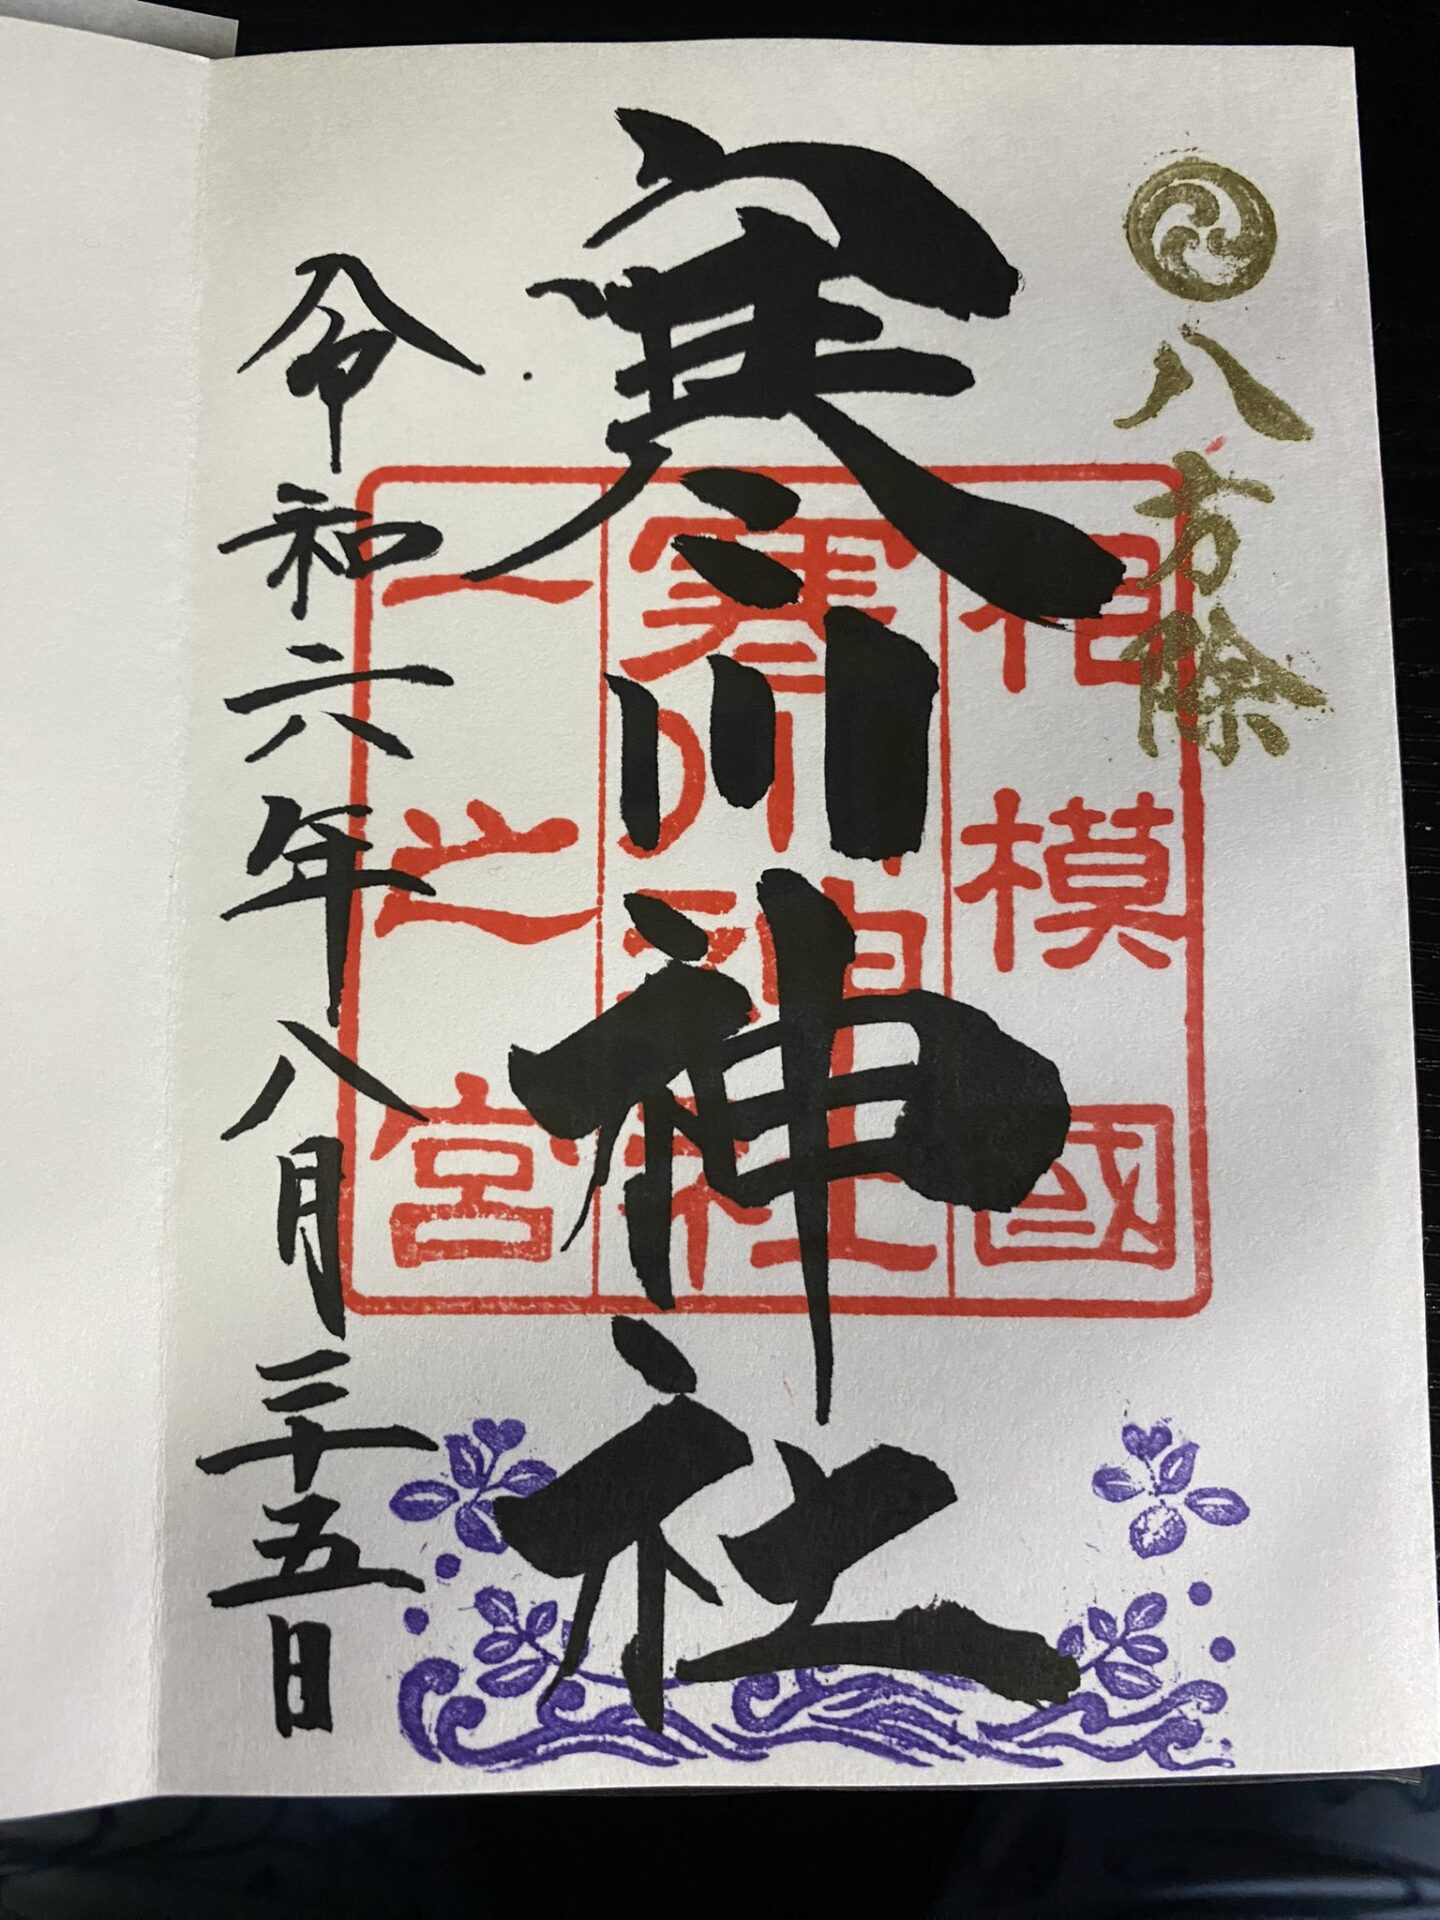 八方除
寒川神社
相模國
寒川神社
一之宮
令和六年八月二十五日